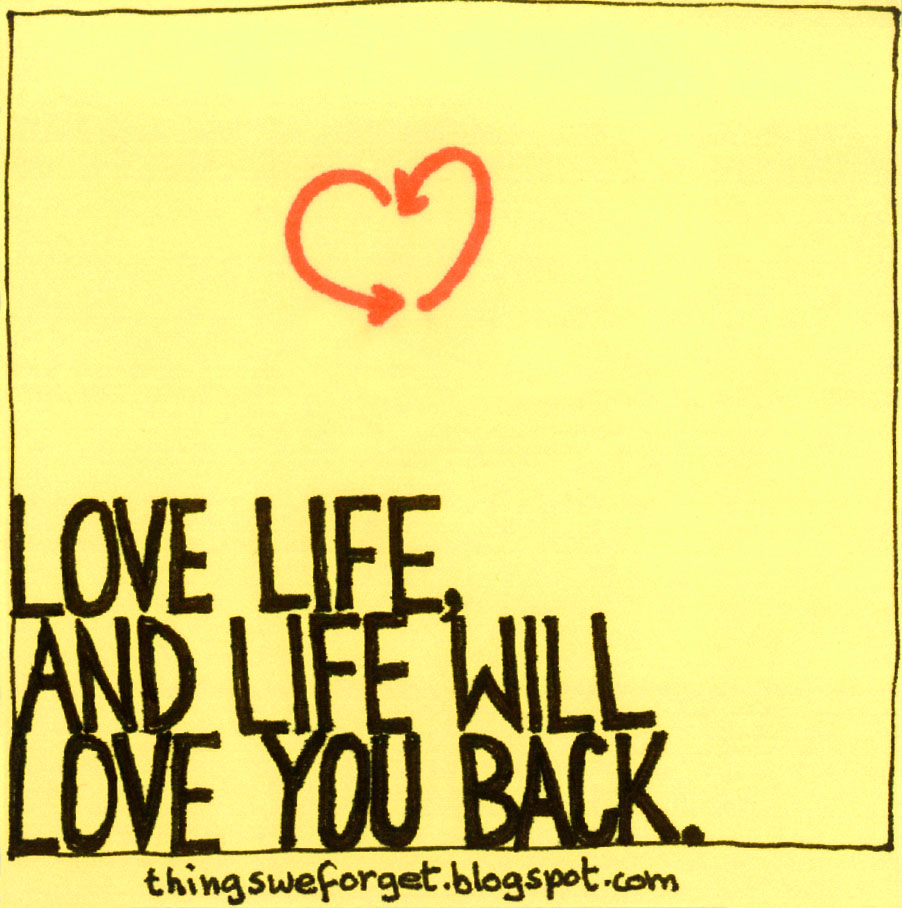 LOVE LIFE,
AND LIFE WILL
LOVE YOU BACK.
thingsweforget.blogspot.com